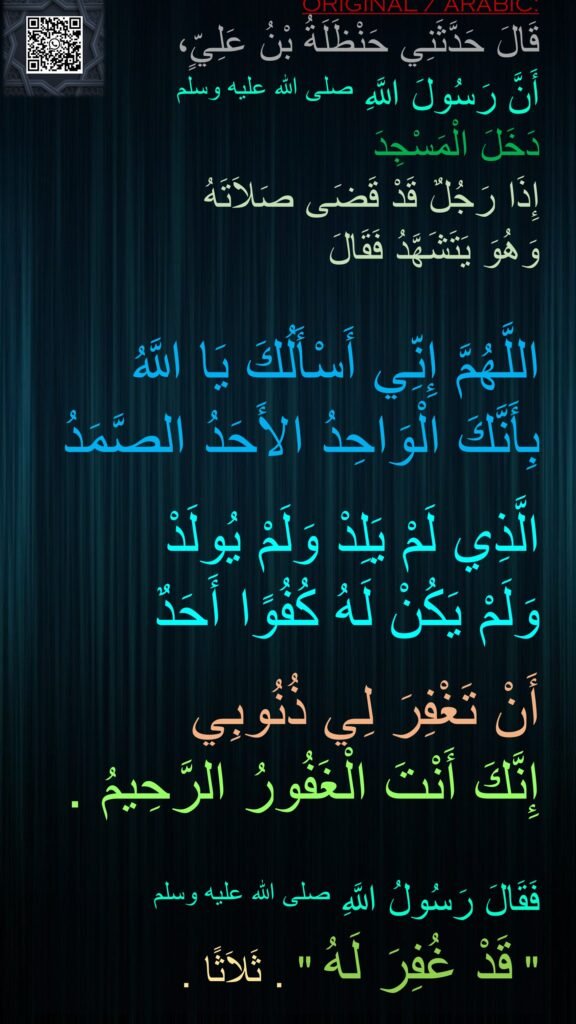 ORIGINAL / ARABIC:
قَالَ حَدَّثَنِي حَنْظَلَةُ بْنُ عَلِيٍّ،
أَنَّ رَسُولَ اللَّهِ صلى الله عليه وسلم
دَخَلَ الْمَسْجِدَ
إِذَا رَجُلٌ قَدْ قَضَى صَلاَتَهُ
وَهُوَ يَتَشَهَّدُ فَقَالَ
اللَّهُمَّ إِنِّي أَسْأَلُكَ يَا اللَّهُ
بِأَنَّكَ الْوَاحِدُ الأَحَدُ الصَّمَدُ
الَّذِي لَمْ يَلِدْ وَلَمْ يُولَدْ
وَلَمْ يَكُنْ لَهُ كُفُوًا أَحَدٌ
أَنْ تَغْفِرَ لِي ذُنُوبِي
إِنَّكَ أَنْتَ الْغَفُورُ الرَّحِيمُ .
فَقَالَ رَسُولُ اللَّهِ صلى الله عليه وسلم
" قَدْ غُفِرَ لَهُ " . ثَلاَثًا .